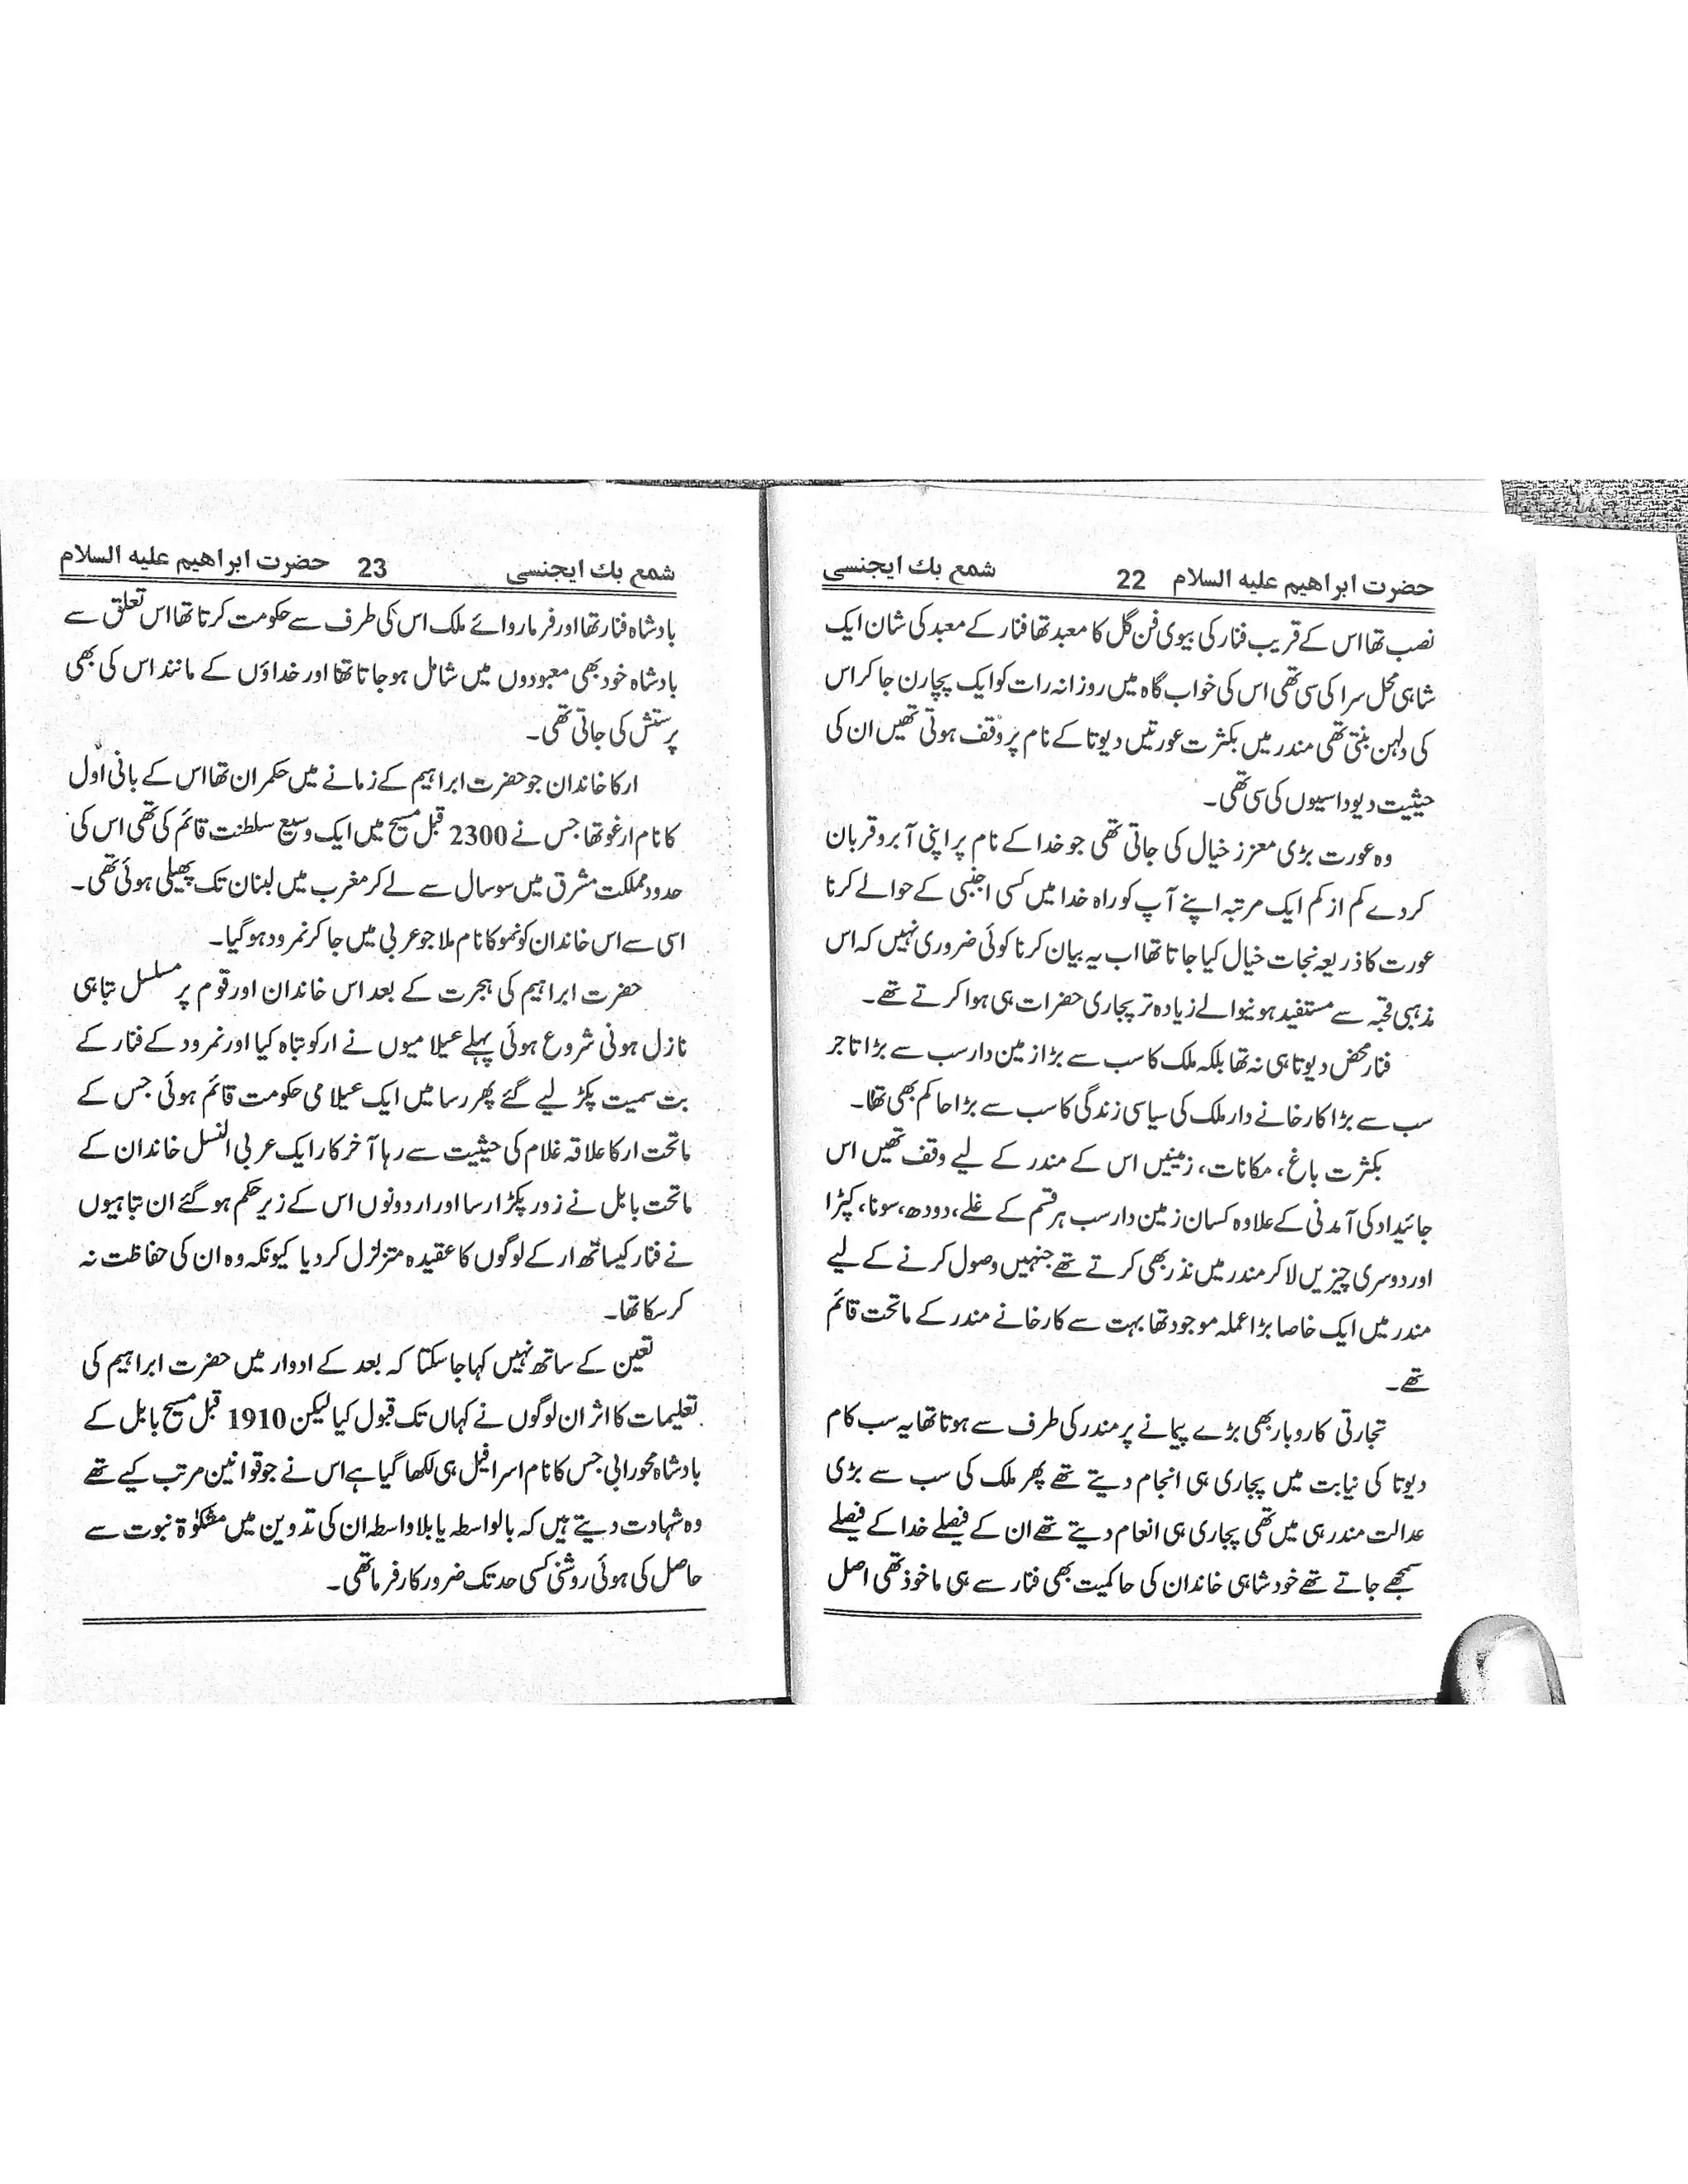 حضرت ابراهیم علیه السلام 22 شمع بك ایجنسی
نصب تھا اس کے قریب فنار کی بیوی فن گل کا معبد تھا فنار کے معبد کی شان ایک
شاہی محل سرا کی سی تھی اس کی خواب گاہ میں روزانہ رات کو ایک پچارن جا کر اس
کی دلہن بنتی تھی مندر میں بکثرت عورتیں دیوتا کے نام پر وقف ہوتی تھیں ان کی
حیثیت دیوداسیوں کی سی تھی۔
وہ عورت بڑی معزز خیال کی جاتی تھی جو خدا کے نام پر اپنی آبرو قربان
کردے کم از کم ایک مرتبہ اپنے آپ کو راہ خدا میں کسی اجنبی کے حوالے کرنا
عورت کا ذریعہ نجات خیال کیا جاتا تھا اب یہ بیان کرنا کوئی ضروری نہیں کہ اس
مذہبی قحبہ سے مستفید ہونیوالے زیادہ تر پجاری حضرات ہی ہوا کرتے تھے۔
فنار محض دیوتا ہی نہ تھا بلکہ ملک کا سب سے بڑا زمین دار سب سے بڑا تاجر
سب سے بڑا کارخانے دار ملک کی سیاسی زندگی کا سب سے بڑا حاکم بھی تھا۔
بکثرت باغ، مکانات، زمینیں اس کے مندر کے لیے وقف تھیں اس
جائیداد کی آمدنی کے علاوہ کسان زمین دار سب ہر قسم کے غلے، دودھ، سونا، کپڑا
اور دوسری چیزیں لا کر مندر میں نذر بھی کرتے تھے جنہیں وصول کرنے کے لیے
مندر میں ایک خاصا بڑا عملہ موجود تھا بہت سے کارخانے مندر کے ماتحت قائم
تھے۔
تجارتی کاروبار بھی بڑے پیمانے پر مندر کی طرف سے ہوتا تھا یہ سب کام
دیوتا کی نیابت میں پجاری ہی انجام دیتے تھے پھر ملک کی سب سے بڑی
عدالت مندر ہی میں تھی پجاری ہی انعام دیتے تھے ان کے فیصلے خدا کے فیصلے
سمجھے جاتے تھے خود شاہی خاندان کی حاکمیت بھی فنار سے ہی ماخوذ تھی اصل
شمع بك ایجنسی 23 حضرت ابراهیم علیه السلام
بادشاہ فنار تھا اور فرمار وائے ملک اس کی طرف سے حکومت کرتا تھا اس تعلق سے
بادشاہ خود بھی معبودوں میں شامل ہو جاتا تھا اور خداؤں کے مانند اس کی بھی
پرستش کی جاتی تھی۔
ارکا خاندان جو حضرت ابراہیم کے زمانے میں حکمران تھا اس کے بانی اول
کا نام ارغو تھا جس نے 2300 قبل مسیح میں ایک وسیع سلطنت قائم کی تھی اس کی
حدود مملکت مشرق میں سوسال سے لے کر مغرب میں لبنان تک پھیلی ہوئی تھی۔
اسی سے اس خاندان کو نمو کا نام ملا جو عربی میں جا کر نمرود ہو گیا۔
حضرت ابراہیم کی ہجرت کے بعد اس خاندان اور قوم پر مسلسل تباہی
نازل ہونی شروع ہوئی پہلے عیلا میوں نے ارکو تباہ کیا اور نمرود کے فنار کے
بت سمیت پکڑ لیے گئے پھر رسا میں ایک عیلامی حکومت قائم ہوئی جس کے
ماتحت ارکا علاقہ غلام کی حیثیت سے رہا آخر کار ایک عربی النسل خاندان کے
ماتحت بابل نے زور پکڑا رسا اور ار دونوں اس کے زیر حکم ہو گئے ان تباہیوں
نے فنار کیساتھ ار کے لوگوں کا عقیدہ متزلزل کر دیا کیونکہ وہ ان کی حفاظت نہ
کر سکا تھا۔
تعین کے ساتھ نہیں کہا جا سکتا کہ بعد کے ادوار میں حضرت ابراہیم کی
تعلیمات کا اثر ان لوگوں نے کہاں تک قبول کیا لیکن 1910 قبل مسیح بابل کے
بادشاہ محورابی جس کا نام اسرافیل ہی لکھا گیا ہے اس نے جو قوانین مرتب کیے تھے
وہ شہادت دیتے ہیں کہ بالواسطہ یا بلاواسطہ ان کی تدوین میں مشکوٰۃ نبوت سے
حاصل کی ہوئی روشنی کسی حد تک ضرور کارفرما تھی۔